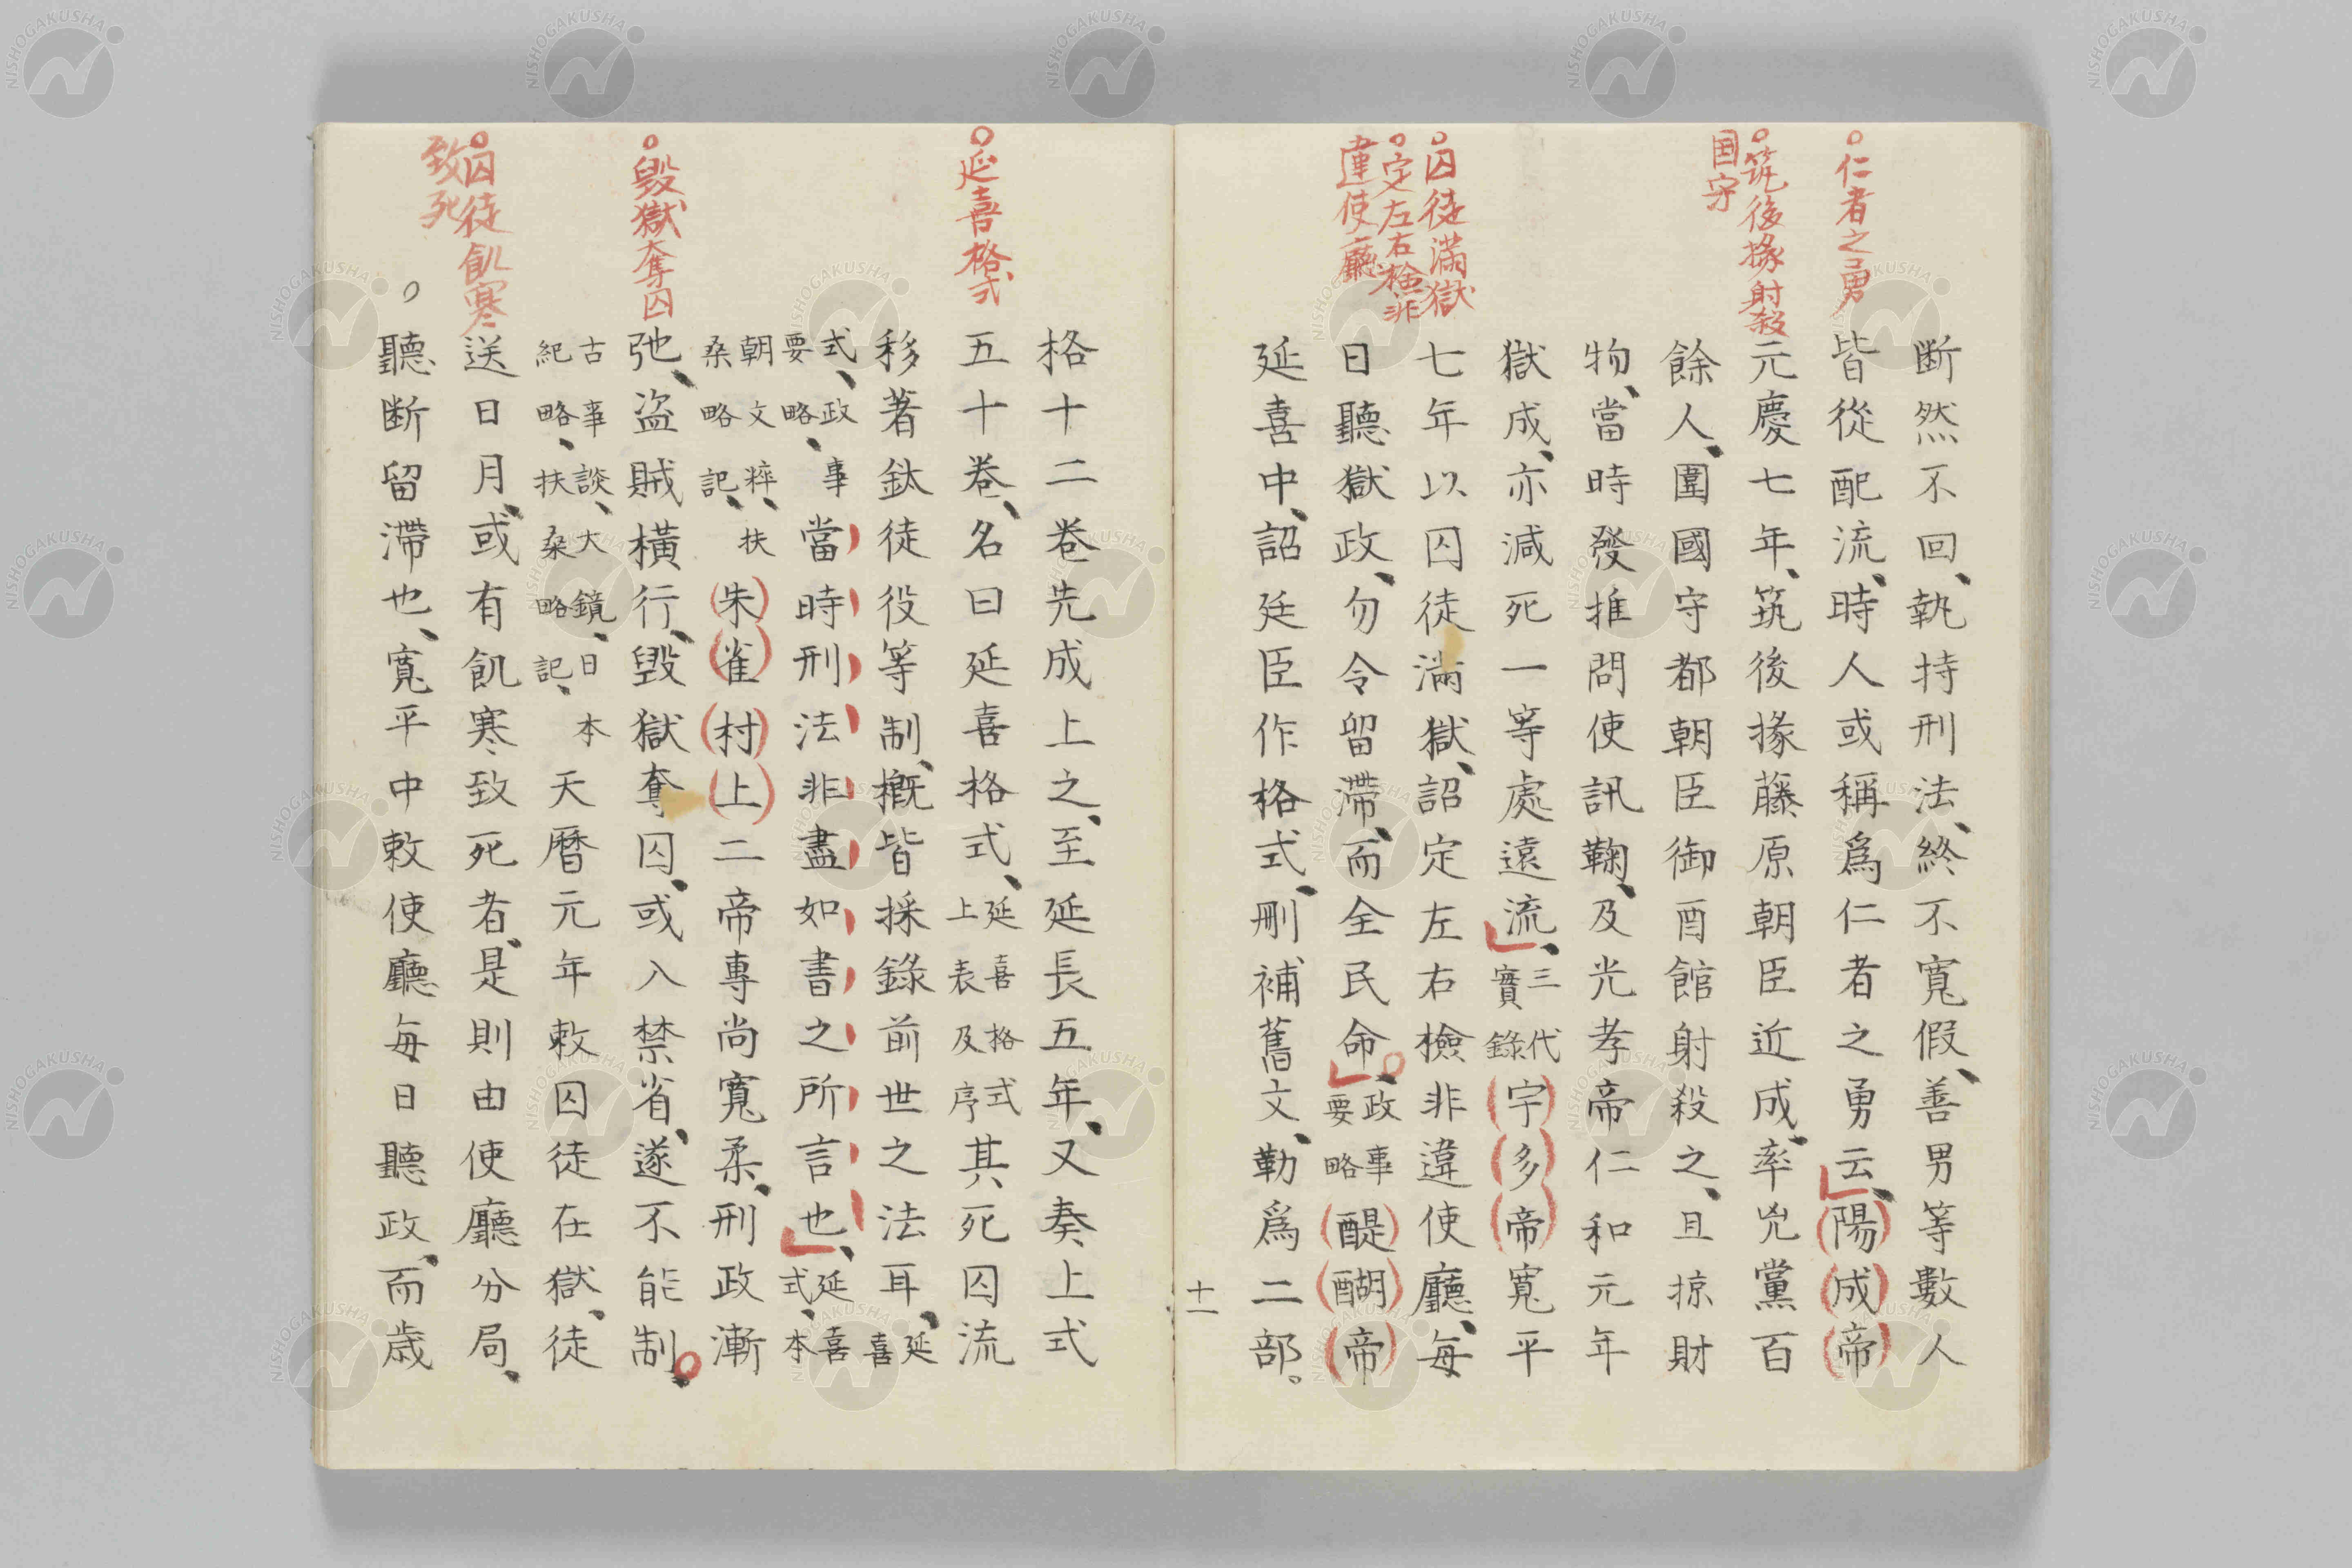 仁者之勇
筑後掾射殺
国守
囚徒滿獄
定左右檢非
違使廳
断然不回、執持刑法、終不寬假、善男等數人
皆從配流、時人或稱爲仁者之勇云、陽成帝
元慶七年、筑後掾藤原朝臣近成、率兇黨百
餘人、圍國守都朝臣御酉館射殺之、且掠財
物、當時發推問使訊鞠、及光孝帝仁和元年
獄成、亦減死一等處遠流、三代實錄宇多帝寬平
七年以囚徒滿獄、詔定左右檢非違使廳、每
日聽獄政、勿令留滯、而全民命、政事要略醍醐帝
延喜中、詔廷臣作格式、刪補舊文、勒爲二部。
十一
延喜格式
毀獄奪囚
囚徒飢寒
致死
格十二卷先成上之、至延長五年、又奏上式
五十卷、名曰延喜格式、延喜格式上表及序其死囚流
移著鈦徒役等制、概皆採錄前世之法耳、延喜
式、政事要略、當時刑法非盡如書之所言也、延喜式、本
朝文粹、扶桑略記、朱雀村上二帝專尚寬柔、刑政漸
弛、盗賊橫行、毀獄奪囚、或入禁省、遂不能制、
古事談、大鏡、日本紀略、扶桑略記、天曆元年敕囚徒在獄、徒
送日月、或有飢寒致死者、是則由使廳分局、
聽断留滯也、寬平中敕使廳每日聽政、而歳
NISHOGAKUSHA